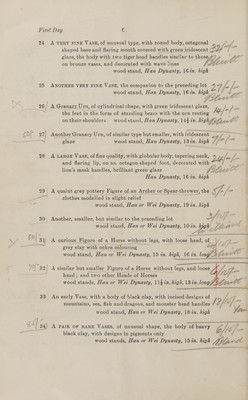 First Day
6
24 A VERY FINE VASE, of unusual type, with round body, octagonal
shaped base and flaring mouth covered with green iridescent
glaze, the body with two tiger head handles similar to those
on bronze vases, and decorated with wave lines
wood stand, Han Dynasty, 16 in. high
25 ANOTHER VERY FINE VASE, the companion to the preceding lot
wood stand, Han Dynasty, 16 in. high
26 A Granary Urn, of cylindrical shape, with green iridescent glaze,
the feet in the form of standing bears with the urn resting
on their shoulders wood stand, Han Dynasty, in. high
27 Another Granary Urn, of similar type but smaller, with iridescent
glaze wood stand, Han Dynasty, 13 in. high
28 A LARGE VASE, of fine quality, with globular body, tapering neck,
and flaring lip, on an octagon-shaped foot, decorated with
lion's mask handles, brilliant green glaze
Han Dynasty, 16 in. high
29 A quaint grey pottery Figure of an Archer or Spear-thrower, the
clothes modelled in slight relief
wood stand, Han or Wei Dynasty, 19 in. high
30 Another, smaller, but similar to the preceding lot
wood stand, Han or Wei Dynasty, in. high
31 A curious Figure of a Horse without legs, with loose head, of
grey clay with ochre colouring
wood stand, Han or Wei Dynasty, 15 in. high, 16 in. long
32 A similar but smaller Figure of a Horse without legs, and loose
head; and two other Heads of Horses
wood stands, Han or Wei Dynasty, 11½ in. high, 13 in. long
33 An early Vase, with a body of black clay, with incised designs of
mountains, sea, fish and dragons, and monster head handles
wood stand, Han or Wei Dynasty, 18 in. high
34 A PAIR OF RARE VASES, of unusual shape, the body of heavy
black clay, with designs in pigments only
wood stands, Han or Wei Dynasty, in. high